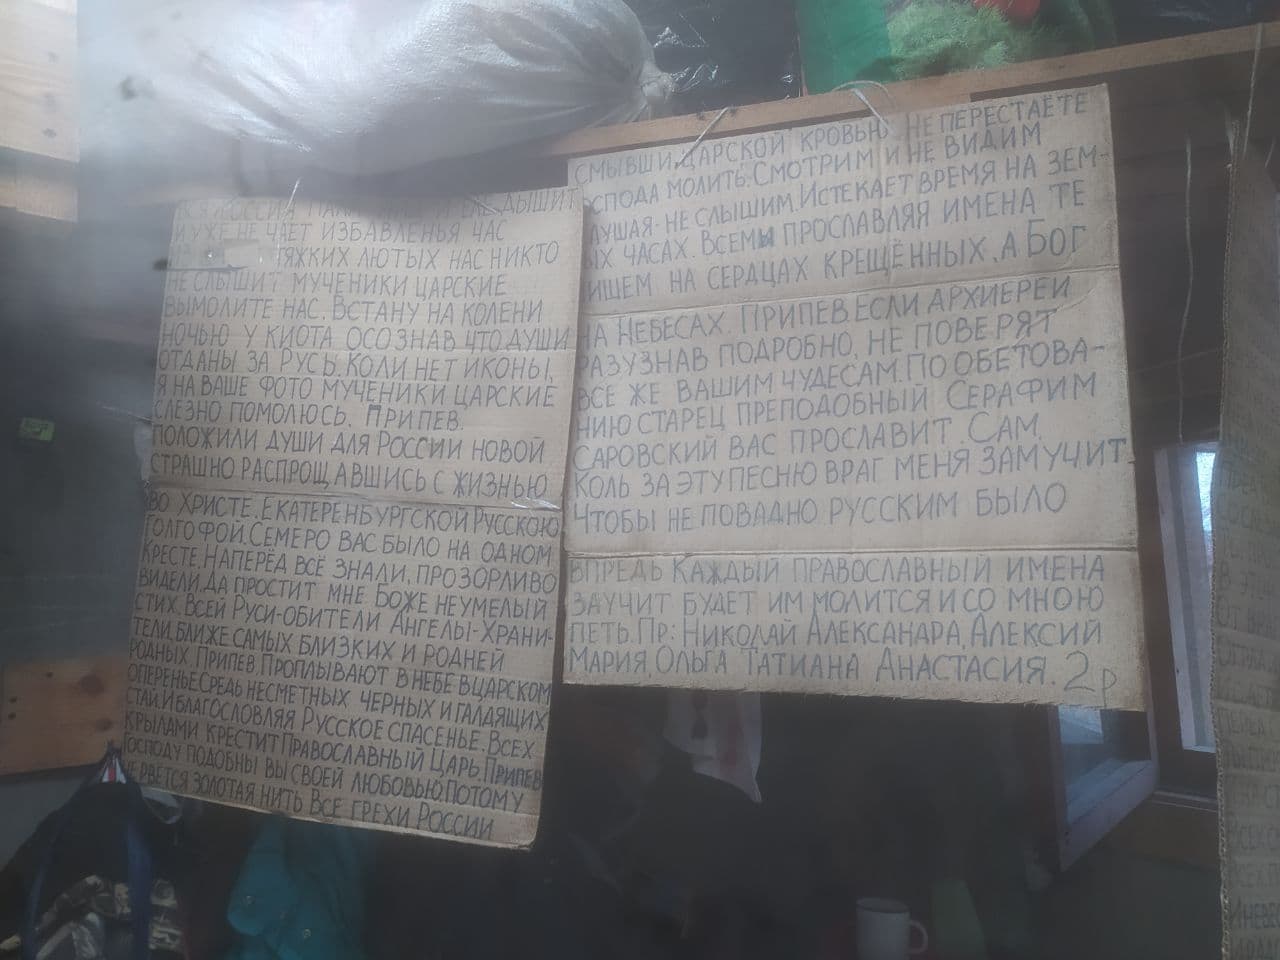 ВСЯ РОССИЯ ДЫШИТ
И УЖЕ НЕ ЧАЕТ ИЗБАВЛЕНЬЯ ЧАС
ТЯЖКИХ ЛЮТЫХ НАС НИКТО
НЕ СЛЫШИТ МУЧЕНИКИ ЦАРСКИЕ
ВЫМОЛИТЕ НАС. ВСТАНУ НА КОЛЕНИ
НОЧЬЮ У КИОТА ОСОЗНАВ ЧТО ДУШИ
ОТДАНЫ ЗА РУСЬ. КОЛИ НЕТ ИКОНЫ
Я НА ВАШЕ ФОТО МУЧЕНИКИ ЦАРСКИЕ
СЛЕЗНО ПОМОЛЮСЬ. ПРИПЕВ.
ПОЛОЖИЛИ ДУШИ ДЛЯ РОССИИ НОВОЙ
СТРАШНО РАСПРОЩАВШИСЬ С ЖИЗНЬЮ
ВО ХРИСТЕ, ЕКАТЕРЕНБУРГСКОЙ РУССКОЮ
ГОЛГОФОЙ. СЕМЕРО ВАС БЫЛО НА ОДНОМ
КРЕСТЕ. НАПЕРЁД ВСЁ ЗНАЛИ, ПРОЗОРЛИВО
ВИДЕЛИ, ДА ПРОСТИТ МНЕ БОЖЕ НЕУМЕЛЫЙ
СТИХ. ВСЕЙ РУСИ-ОБИТЕЛИ АНГЕЛЫ-ХРАНИ-
ТЕЛИ, БЛИЖЕ САМЫХ БЛИЗКИХ И РОДНЕЙ
РОДНЫХ. ПРИПЕВ. ПРОПЛЫВАЮТ В НЕБЕ В ЦАРСКОМ
ОПЕРЕНЬЕ. СРЕДЬ НЕСМЕТНЫХ ЧЕРНЫХ И ГАЛДЯЩИХ
СТАЙ И БЛАГОСЛОВЛЯЯ РУССКОЕ СПАСЕНЬЕ. ВСЕХ
КРЫЛАМИ КРЕСТИТ ПРАВОСЛАВНЫЙ ЦАРЬ. ПРИПЕВ
ГОСПОДУ ПОДОБНЫ ВЫ СВОЕЙ ЛЮБОВЬЮ. ПОТОМУ
НЕ РВЕТСЯ ЗОЛОТАЯ НИТЬ ВСЕ ГРЕХИ РОССИИ
СМЫВШИ ЦАРСКОЙ КРОВЬЮ. НЕ ПЕРЕСТАЁТЕ
ГОСПОДА МОЛИТЬ. СМОТРИМ И НЕ ВИДИМ
СЛУШАЯ-НЕ СЛЫШИМ. ИСТЕКАЕТ ВРЕМЯ НА ЗЕМ-
НЫХ ЧАСАХ. ВСЕМЫ ПРОСЛАВЛЯЯ ИМЕНА ТЕ
ПИШЕМ НА СЕРДЦАХ КРЕЩЁННЫХ, А БОГ
НА НЕБЕСАХ. ПРИПЕВ ЕСЛИ АРХИЕРЕИ
РАЗУЗНАВ ПОДРОБНО, НЕ ПОВЕРЯТ
ВСЕ ЖЕ ВАШИМ ЧУДЕСАМ. ПО ОБЕТОВА-
НИЮ СТАРЕЦ ПРЕПОДОБНЫЙ СЕРАФИМ
САРОВСКИЙ ВАС ПРОСЛАВИТ САМ.
КОЛЬ ЗА ЭТУ ПЕСНЮ ВРАГ МЕНЯ ЗАМУЧИТ
ЧТОБЫ НЕ ПОВАДНО РУССКИМ БЫЛО
ВПРЕДЬ КАЖДЫЙ ПРАВОСЛАВНЫЙ ИМЕНА
ЗАУЧИТ БУДЕТ ИМ МОЛИТСЯ И СО МНОЮ
ПЕТЬ. ПР: НИКОЛАЙ АЛЕКСАНДРА, АЛЕКСИЙ
МАРИЯ, ОЛЬГА ТАТИАНА АНАСТАСИЯ. 2 р